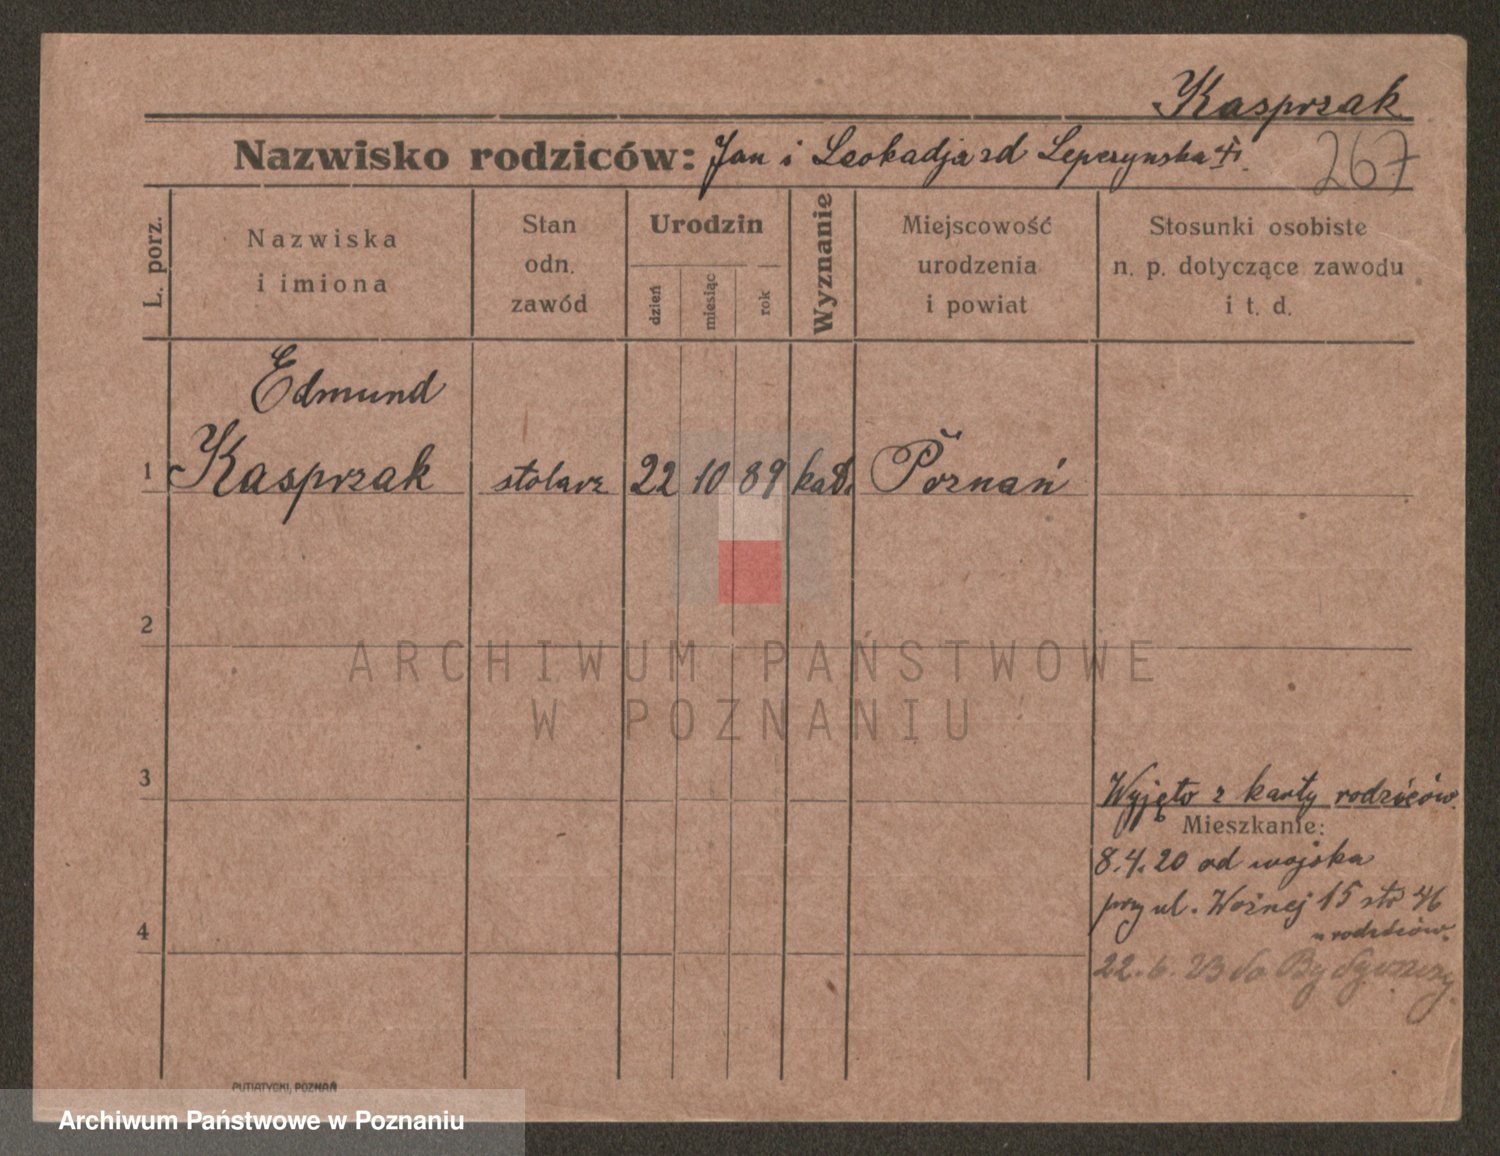 Kasprzak
Nazwisko rodziców: Jan i Leokadja zd Lepczynska
267
L. porz.
Nazwiska
i imiona
Stan
odn.
zawód
Urodzin
dzień
miesiąc
rok
Wyznanie
Miejscowość
urodzenia
i powiat
Stosunki osobiste
n. p. dotyczące zawodu
i t. d.
Edmund
1 Kasprzak stolarz 22 10 89 kat. Poznań
2
ARCHIWUM PAŃSTWOWE
W POZNANIU
3
Wyjęto z karty rodziców.
Mieszkanie:
8.4.20 od wojska
przy ul. Woźnej 15 str 46
u rodziców.
4
22.6.23 do Bydgoszczy.
PUTIATYCKI, POZNAŃ
Archiwum Państwowe w Poznaniu